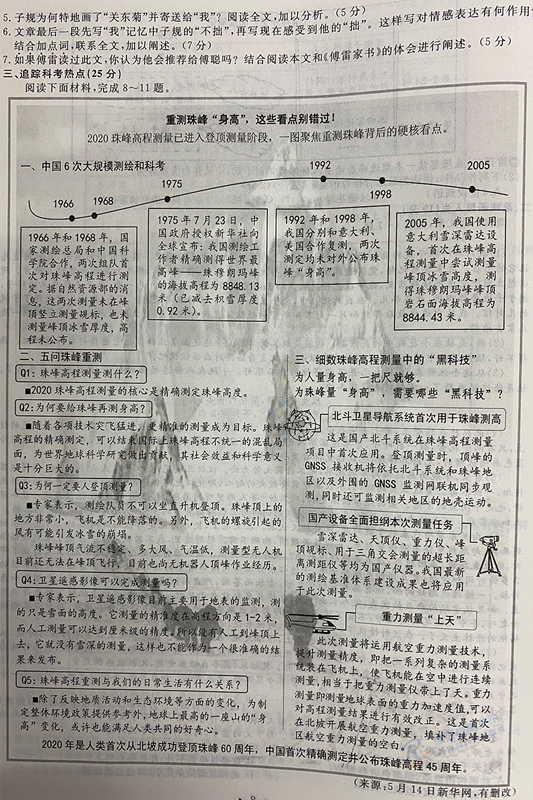 5. 子规为何特地画了“关东菊”并寄送给“我”？阅读全文,加以分析。(5分)
6. 文章最后一段先写“我”记忆中子规的“不拙”,再写现在感受到他的“拙”。这样写对情感表达有何作用
结合加点词,联系全文,加以阐述。(7分)
7. 如果傅雷读过此文,你认为他会推荐给傅聪吗？结合阅读本文和《傅雷家书》的体会进行阐述。(5分)
三、追踪科考热点(25分)
阅读下面材料,完成8~11题。
重测珠峰“身高”,这些看点别错过！
2020珠峰高程测量已进入登顶测量阶段,一图聚焦重测珠峰背后的硬核看点。
一、中国6次大规模测绘和科考
1966
1968
1975
1992
1998
2005
1966年和1968年,国
家测绘总局和中国科
学院合作,两次组队首
次对珠峰高程进行测
定。据自然资源部的消
息,这两次测量未在峰
顶竖立测量觇标,也未
测量峰顶冰雪厚度,高
程未公布。
1975年7月23日,中
国政府授权新华社向
全球宣布:我国测绘工
作者精确测得世界最
高峰——珠穆朗玛峰
的海拔高程为8848.13
米(已减去积雪厚度
0.92米)。
1992年和1998年,
我国分别和意大利、
美国合作复测,两次
测定均未对外公布珠
峰“身高”。
2005年,我国使用
意大利雪深雷达设
备,首次在珠峰高
程测量中尝试测量
峰顶冰雪高度,测
得珠穆朗玛峰峰顶
岩石面海拔高程为
8844.43米。
二、五问珠峰重测
Q1:珠峰高程测量测什么？
■2020珠峰高程测量的核心是精确测定珠峰高度。
Q2:为何要给珠峰再测身高？
■随着各项技术突飞猛进,更精准的测量成为目标。珠峰
高程的精确测定,可以结束国际上珠峰高程不统一的混乱局
面,为世界地球科学研究做出贡献,其社会效益和科学意义
是十分巨大的。
Q3:为何一定要人登顶测量？
■专家表示,测绘队员不可以坐直升机登顶。珠峰顶上的
地方非常小,飞机是不能降落的。另外,飞机的螺旋引起的
风有可能引发冰雪的崩塌。
珠峰峰顶气流不稳定、多大风、气温低,测量型无人机
目前还无法在峰顶飞行,目前也尚无机器人顶峰作业经历。
Q4:卫星遥感影像可以完成测量吗？
■专家表示,卫星遥感影像目前主要用于地表的监测,测
的只是雪面的高度。它测量的精准度在高程方向是1-2米,
而人工测量可以达到厘米级的精度,所以没有人工到峰顶上
去,它就没有雪深的测量,这样也不能作为一个很准确的结
果来发布。
Q5:珠峰重测与我们的日常生活有什么关系？
■除了反映地质活动和生态环境等方面的变化,为制
定整体环境政策提供参考外,地球上最高的一座山的“身
高”变化,或许也能满足人类共同的好奇心。
三、细数珠峰高程测量中的“黑科技”
为人量身高,一把尺就够。
为珠峰量“身高”,需要哪些“黑科技”？
北斗卫星导航系统首次用于珠峰测高
这是国产北斗系统在珠峰高程测量
项目中首次应用。登顶测量时,顶峰的
GNSS接收机将依托北斗系统和珠峰地
区以及外围的GNSS监测网联机同步观
测,同时还可监测相关地区的地壳运动。
国产设备全面担纲本次测量任务
雪深雷达、天顶仪、重力仪、峰
顶觇标、用于三角交会测量的超长距
离测距仪等均为国产仪器。我国最新
的测绘基准体系建设成果也将应用
于此次测量。
重力测量“上天”
此次测量将运用航空重力测量技术,
提升测量精度,即把一系列复杂的测量系
统装在飞机上,使飞机能在空中进行连续
测量,相当于把重力测量仪带上了天。重力
测量即测量地球表面的重力加速度值,可以
对高程测量结果进行有效改正。这是首次
在北坡开展航空重力测量,填补了珠峰地
区航空重力测量的空白。
2020年是人类首次从北坡成功登顶珠峰60周年,中国首次精确测定并公布珠峰高程45周年。
(来源:5月14日新华网,有删改)